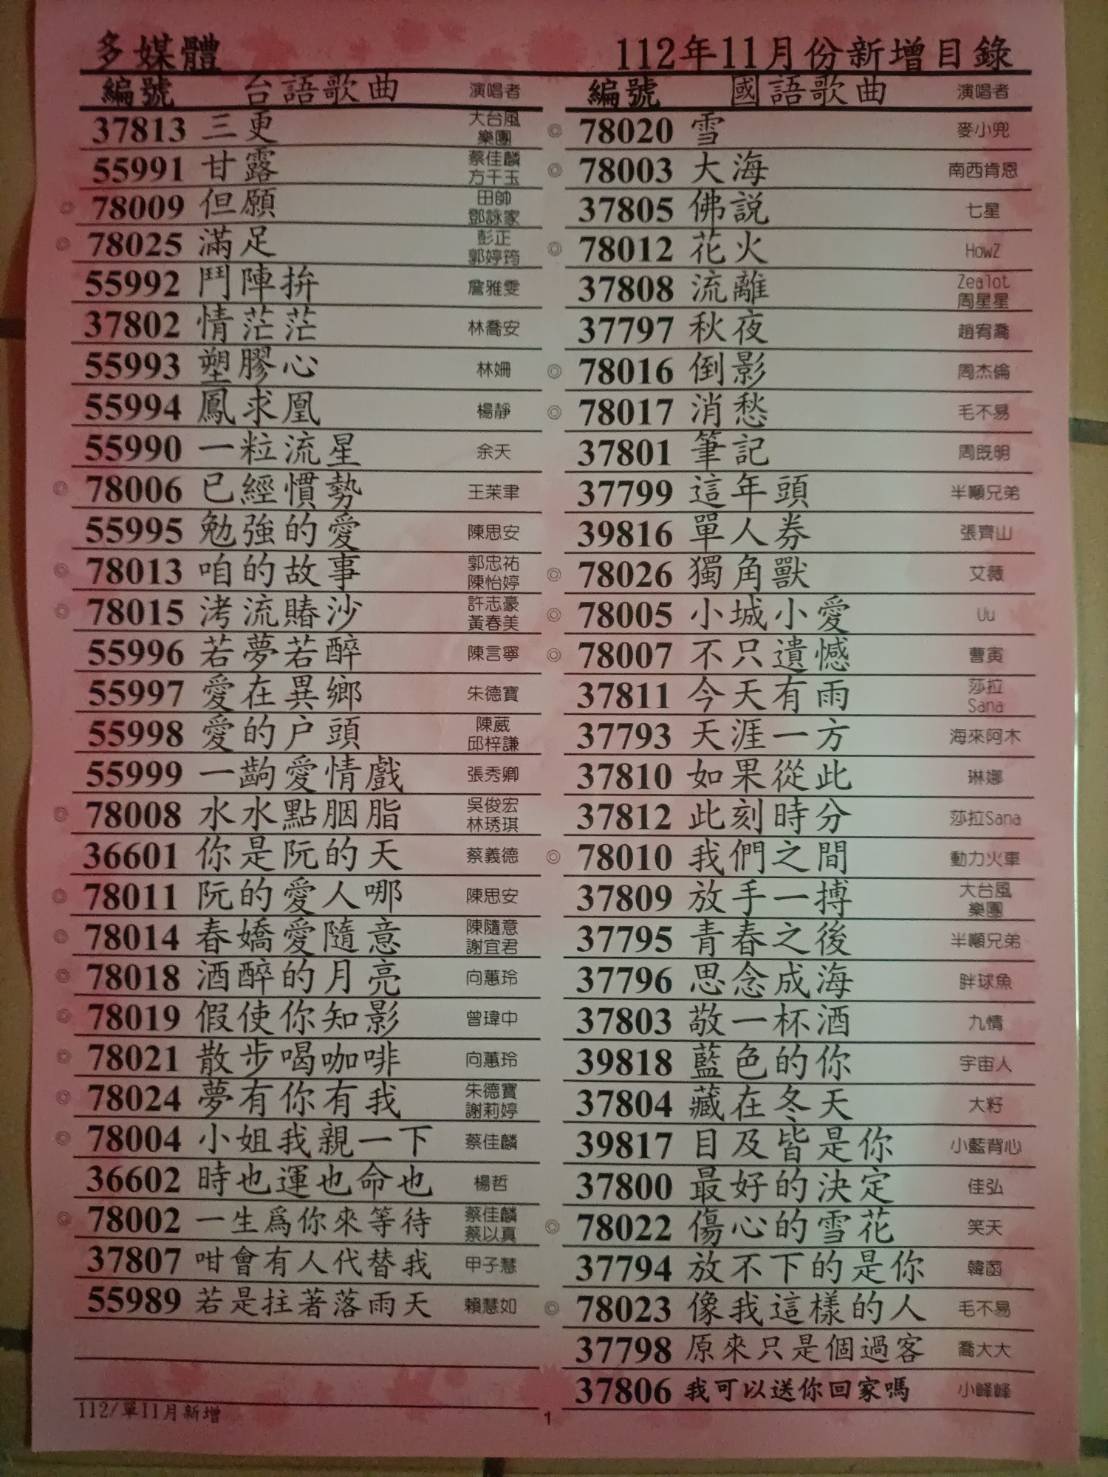 多媒體
112年11月份新增目錄
編號 台語歌曲 演唱者
37813 三更 大台風樂團
55991 甘露 蔡佳麟 方千玉
◎ 78009 但願 田帥 鄧詠家
◎ 78025 滿足 彭正 郭婷筠
55992 鬥陣拚 詹雅雯
37802 情茫茫 林喬安
55993 塑膠心 林姍
55994 鳳求凰 楊靜
55990 一粒流星 余天
◎ 78006 已經慣勢 王茉聿
55995 勉強的愛 陳思安
◎ 78013 咱的故事 郭忠祐 陳怡婷
◎ 78015 洘流賰沙 許志豪 黃春美
55996 若夢若醉 陳言寧
55997 愛在異鄉 朱德寶
55998 愛的户頭 陳葳 邱梓謙
55999 一齣愛情戲 張秀卿
◎ 78008 水水點胭脂 吳俊宏 林琇琪
36601 你是阮的天 蔡義德
◎ 78011 阮的愛人哪 陳思安
◎ 78014 春嬌愛隨意 陳隨意 謝宜君
◎ 78018 酒醉的月亮 向蕙玲
◎ 78019 假使你知影 曾瑋中
◎ 78021 散步喝咖啡 向蕙玲
◎ 78024 夢有你有我 朱德寶 謝莉婷
◎ 78004 小姐我親一下 蔡佳麟
36602 時也運也命也 楊哲
◎ 78002 一生為你來等待 蔡佳麟 蔡以真
37807 咁會有人代替我 甲子慧
55989 若是拄著落雨天 賴慧如
112/單11月新增
編號 國語歌曲 演唱者
◎ 78020 雪 麥小兜
◎ 78003 大海 南西肯恩
37805 佛説 七星
◎ 78012 花火 HowZ
37808 流離 Zealot 周星星
37797 秋夜 趙宥喬
◎ 78016 倒影 周杰倫
◎ 78017 消愁 毛不易
37801 筆記 周既明
37799 這年頭 半噸兄弟
39816 單人券 張齊山
◎ 78026 獨角獸 艾薇
◎ 78005 小城小愛 Uu
◎ 78007 不只遺憾 曹寅
37811 今天有雨 莎拉Sana
37793 天涯一方 海來阿木
37810 如果從此 琳娜
37812 此刻時分 莎拉Sana
◎ 78010 我們之間 動力火車
37809 放手一搏 大台風樂團
37795 青春之後 半噸兄弟
37796 思念成海 胖球魚
37803 敬一杯酒 九情
39818 藍色的你 宇宙人
37804 藏在冬天 大籽
39817 目及皆是你 小藍背心
37800 最好的決定 佳弘
◎ 78022 傷心的雪花 笑天
37794 放不下的是你 韓函
◎ 78023 像我這樣的人 毛不易
37798 原來只是個過客 喬大大
37806 我可以送你回家嗎 小峰峰
1